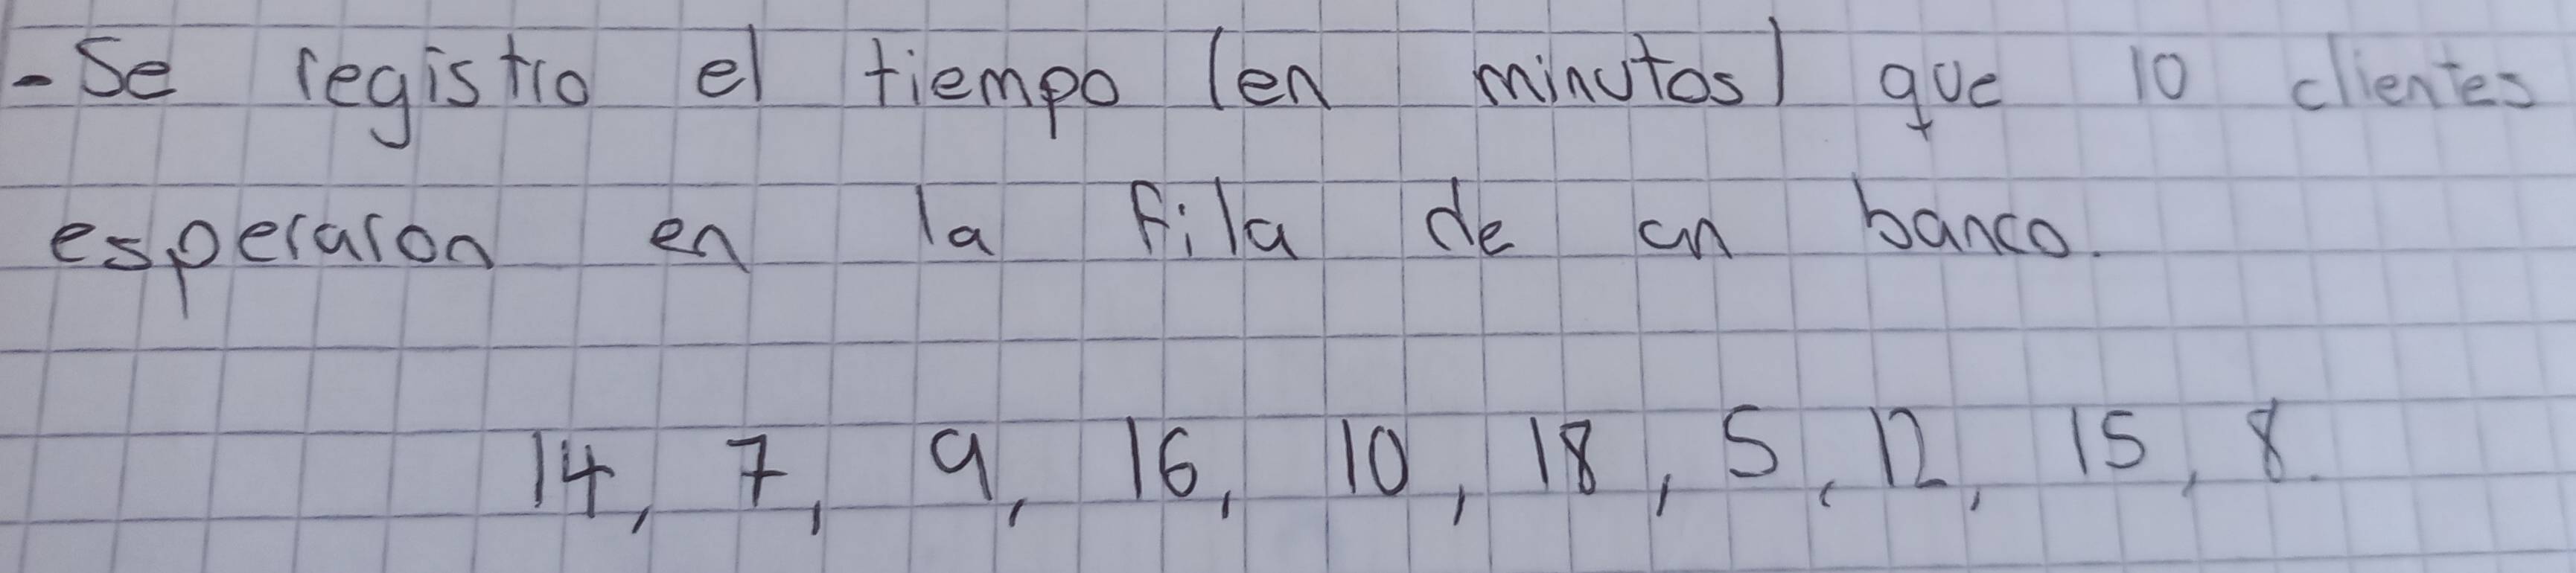 - Se registro el tiempo (en minutos) que 10 clientes
esperaron en la fila de un banco.
14, 7, 9, 16, 10, 18, 5, 12, 15, 8.